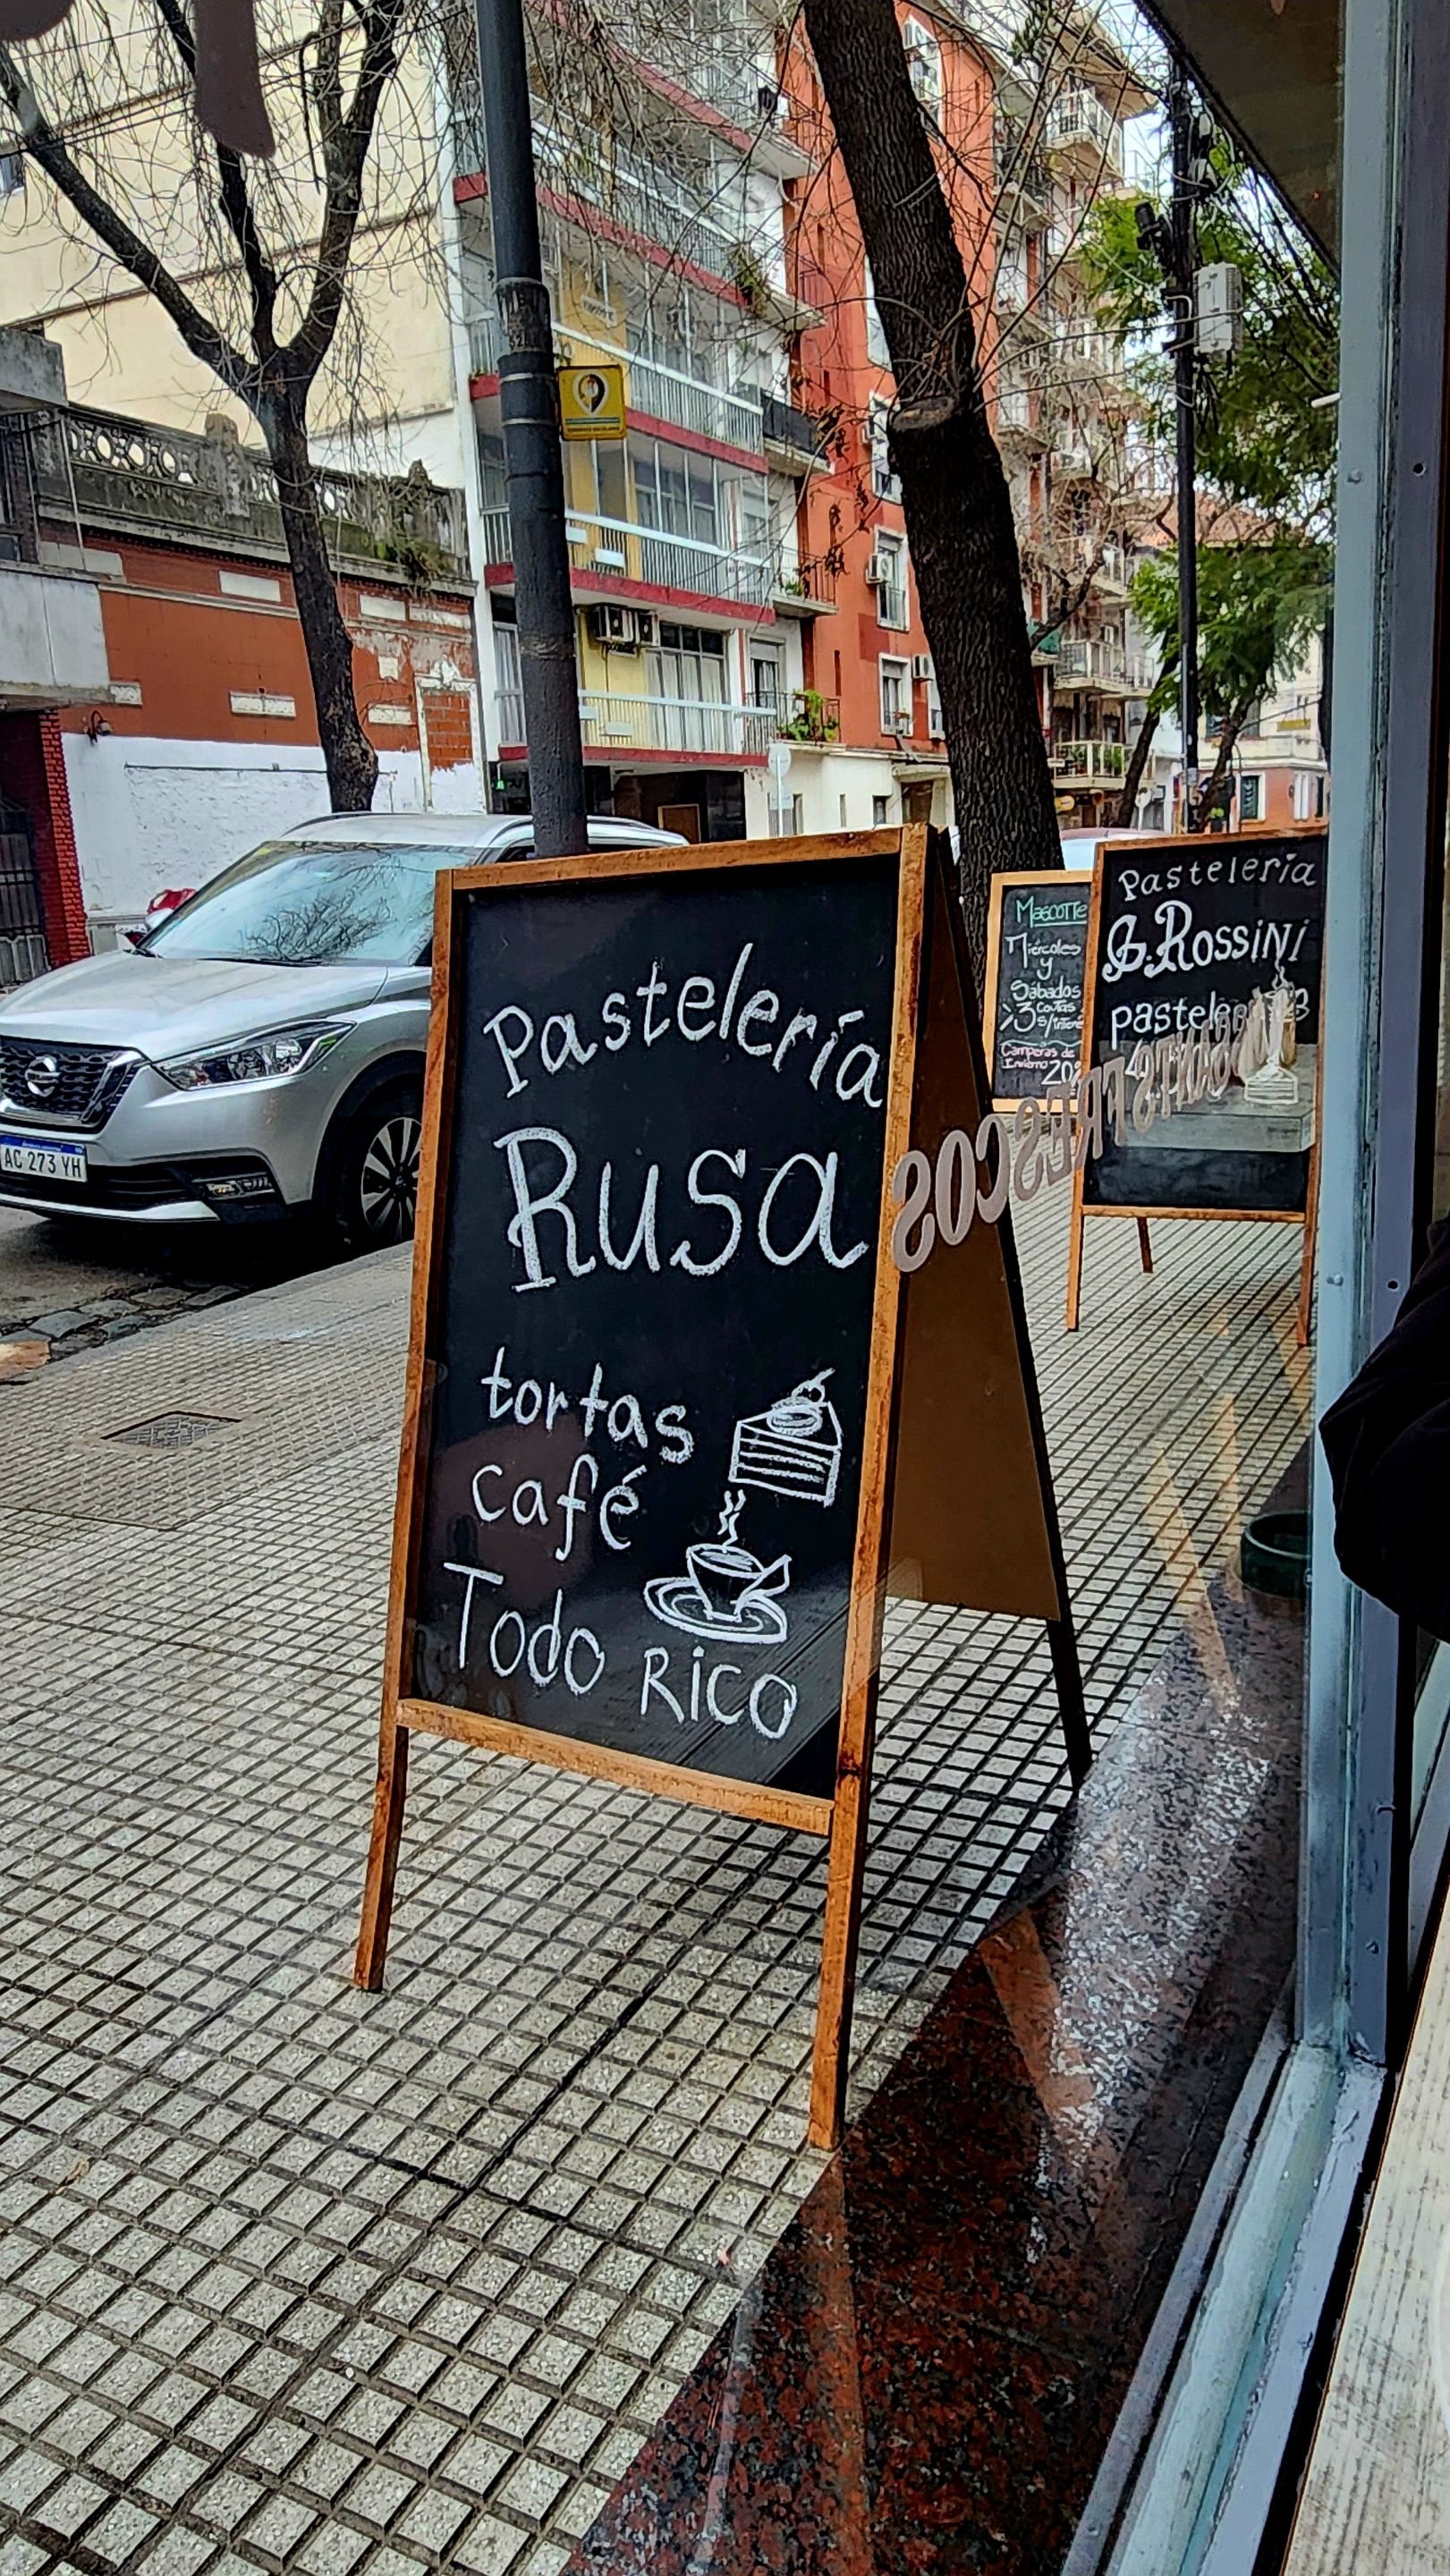 Pastelería
Rusa
tortas
café
Todo Rico
Mascotte
Miércoles
y
Sábados
3 cuotas
Camperas de
Invierno
Pastelería
G. Rossini
FRESCOS
AC 273 YH